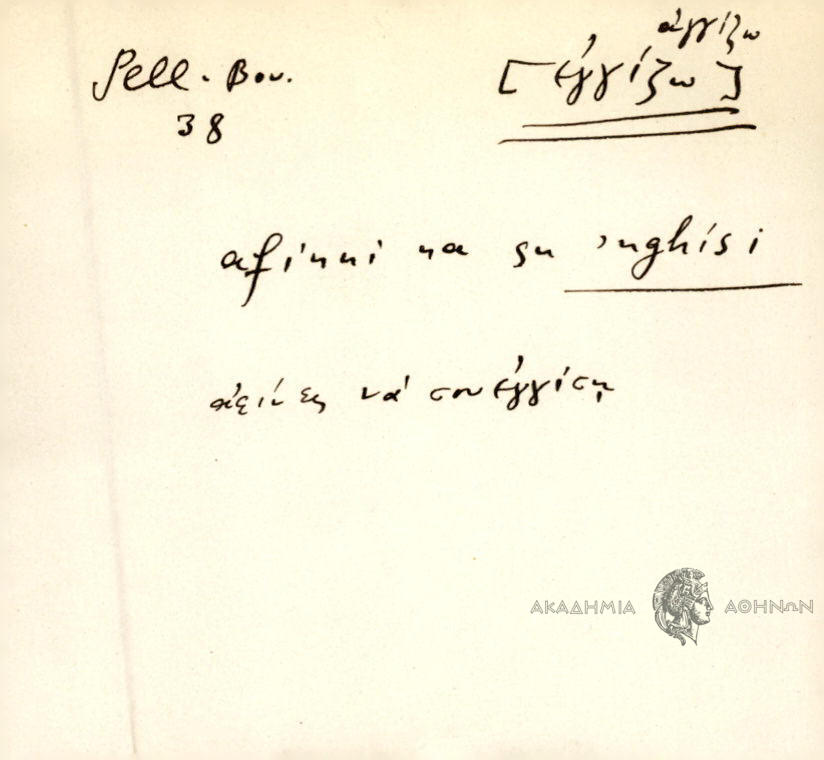 ἀγγίζω
Pell. Βου. [ἐγγίζω]
38
afinni na su 'nghísi
ἀφίνεις νά σου ἐγγίσῃ
ΑΚΑΔΗΜΙΑ ΑΘΗΝΩΝ